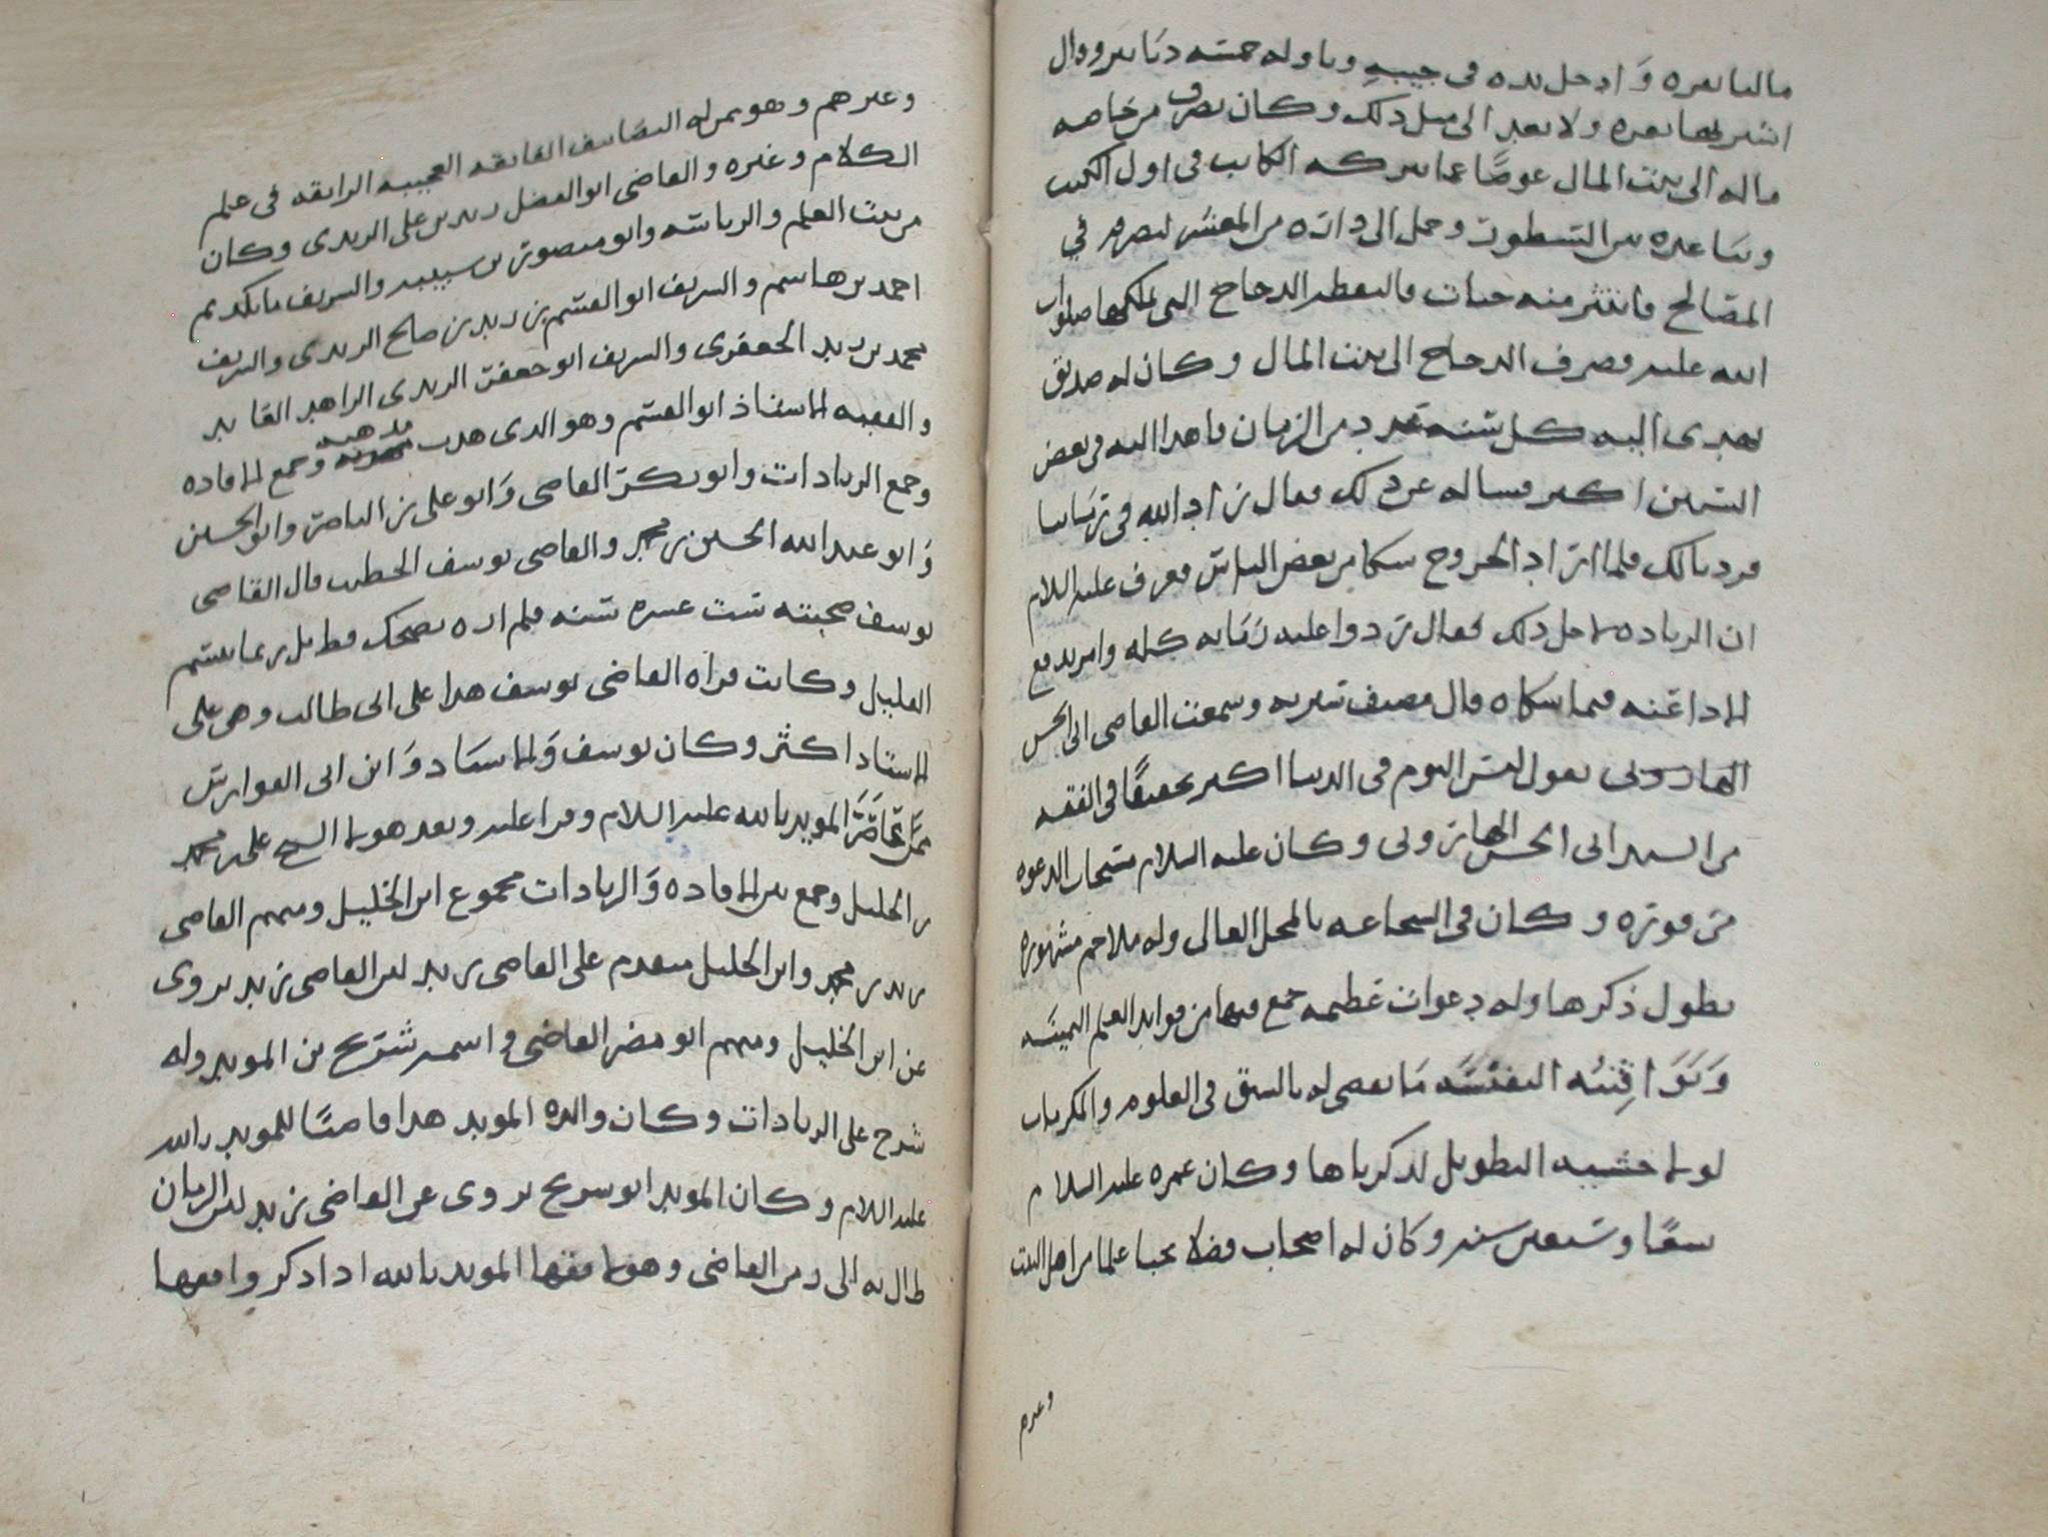 مالنا نعره وَادخل يده في جيبه وناوله خمسه دنانير وقال
اشتر لها نعره ولا تعد الى مثل ذلك وكان يصرف من خاصه
ماله الى بيت المال عوضًا عما يتركه الكاتب في اول الكتب
وساعده بين السطور وحمل الى داره من المعشر ليصرم في
المصالح فانتثر منه حبات فالتقطه الدجاج التي ملكها صلوات
الله عليه فصرف الدجاج الى بيت المال وكان له صديق
يهدي اليه كل سنه عدد من الرمان فاهدا اليه في بعض
السنين اكثر فساله عن ذلك فقال زاد الله في رماننا
فزدنا لك فلما اراد الخروج شكا من بعض الناس فعرف عليه السلام
ان الزياده لاجل ذلك فقال ردوا عليه رمانه كله وامر بدفع
الاداعنه فيما شكاه قال مصنف سيرته وسمعت القاضي ابى الحسن
الهاروني يقول ليس اليوم في الدنيا اكثر تحقيقًا في الفقه
من السيد ابى الحسن الهاروني وكان عليه السلام مستجاب الدعوه
من فوره وكان في الشجاعه بالمحل العالي وله ملاحم مشهوره
يطول ذكرها وله دعوات عظيمه جمع فيها من فوايد العلم الثمينه
وَيَوَاقيته النفيسه مَا يقضي له بالسبق في العلوم والمكرمات
لولا خشيه التطويل لذكرناها وكان عمره عليه السلام
سبعًا وسبعين سنه وكان له اصحاب فضلا نجبا علما من اهل البيت
وغيرهم
وغيرهم وهو ممن له التصانيف الفايقه العجيبه الرايقه في علم
الكلام وغيره والقاضي ابو الفضل زيد بن علي الزيدي وكان
من بيت العلم والرياسه وابو منصور بن شيبه والشريف مانكديم
احمد بن هاشم والشريف ابو القسم بن زيد بن صالح الزيدي والشريف
محمد بن زيد الجعفري والشريف ابو جعفر الزيدي الزاهد القايد
والفقيه الاستاذ ابو القسم وهو الذي هذب مذهبه وجمع الافاده
وجمع الزيادات وابو بكر القاضي وَابو علي بن الناصر وابو الحسين
وَابو عبد الله الحسين بن محمد والقاضي يوسف الخطيب قال القاضي
يوسف صحبته ست عشره سنه فلم اره يضحك قط بل ربما يبتسم
القليل وكانت قراه القاضي يوسف هذا على ابى طالب وهي على
الاستاد اكثر وكان يوسف وَالاستاد وَابن ابى الفوارس
ممن عَاصَرَ المويد بالله عليه السلام وقرا عليه وبعد هولا الشيخ على بن محمد
بن الخليل وجمع بين الافاده وَالزيادات مجموع ابن الخليل ومنهم القاضي
زيد بن محمد وابن الخليل متقدم على القاضي زيد لان القاضي زيد يروي
عن ابن الخليل ومنهم ابو مضر القاضي واسمه شريح بن المويد وله
شرح على الزيادات وكان والده المويد هذا قاضيًا للمويد بالله
عليه السلام وكان المويد ابو شريح يروي عن القاضي زيد لان الزمان
طال به الى زمن القاضي وهولا فقها المويد بالله اذا ذكر وافقها